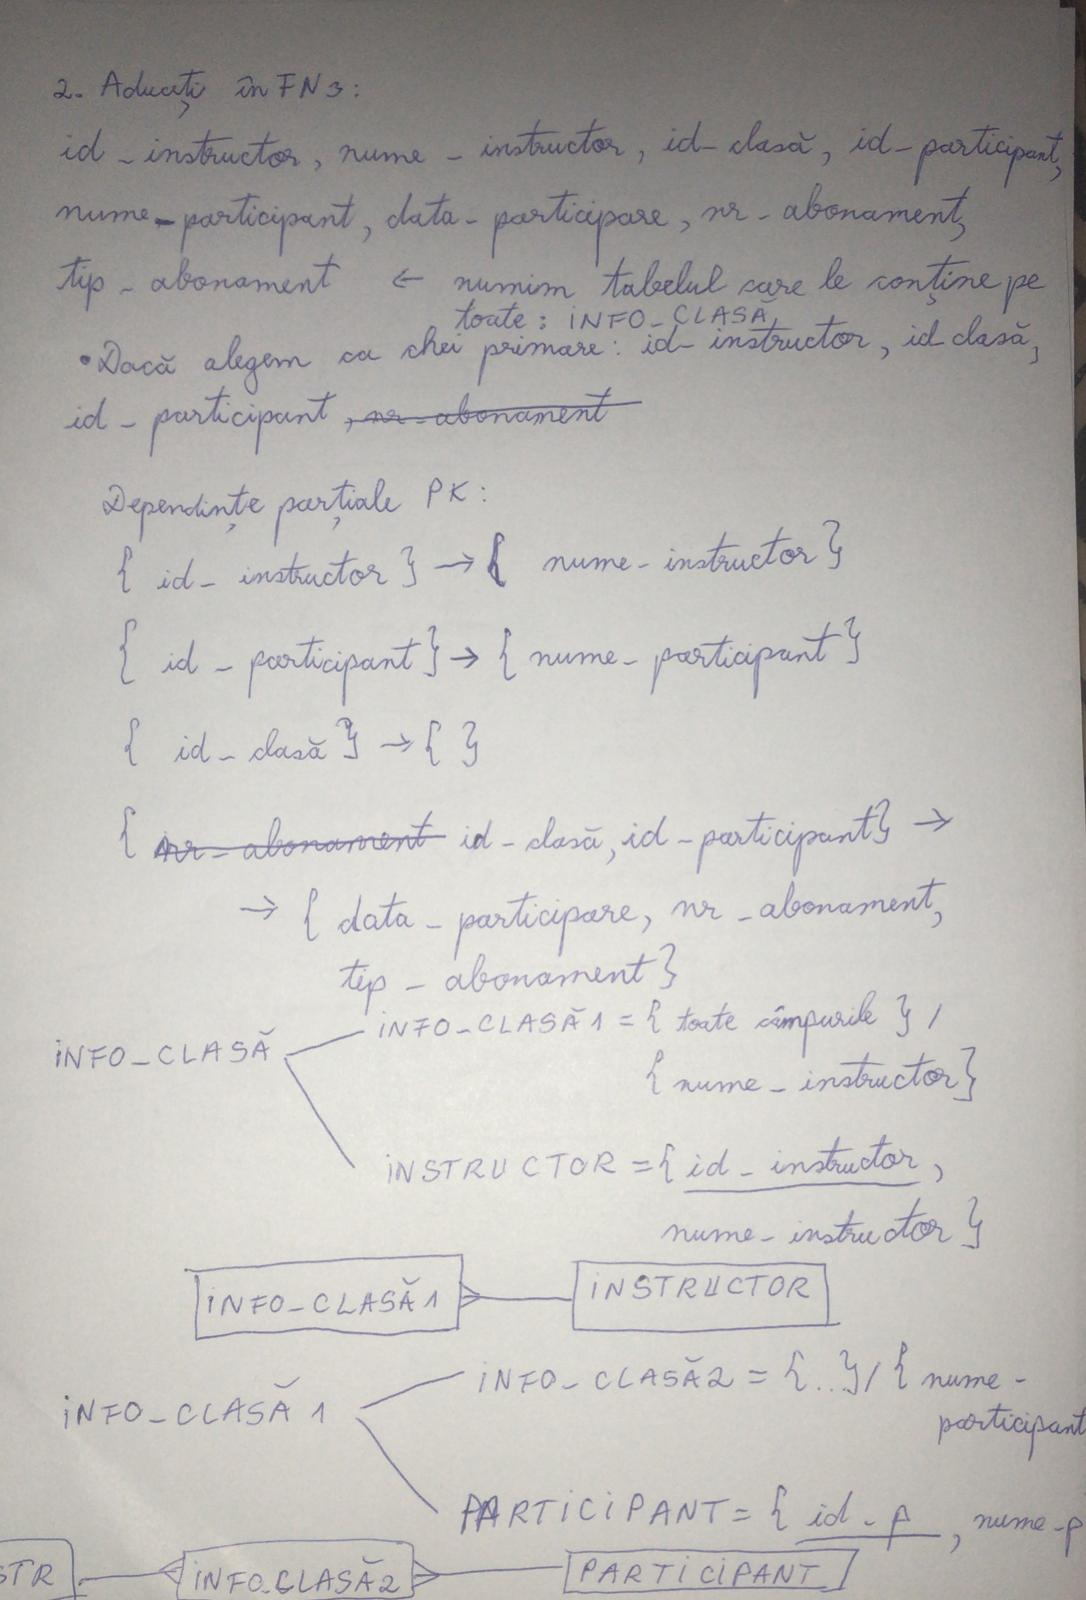 2. Aduceți în FN3:
id_instructor, nume_instructor, id_clasă, id_participant,
nume_participant, data_participare, nr_abonament,
tip_abonament ← numim tabelul care le conține pe
toate: INFO_CLASĂ
• Dacă alegem ca chei primare: id_instructor, id_clasă,
id_participant, nr_abonament
Dependințe parțiale PK:
{ id_instructor } → { nume_instructor }
{ id_participant } → { nume_participant }
{ id_clasă } → { }
{ nr_abonament id_clasă, id_participant } →
→ { data_participare, nr_abonament,
tip_abonament }
INFO_CLASĂ1 = { toate câmpurile } /
INFO_CLASĂ
{ nume_instructor }
INSTRUCTOR = { id_instructor,
nume_instructor }
INFO_CLASĂ1 INSTRUCTOR
INFO_CLASĂ2 = {...} / { nume_
INFO_CLASĂ1
participant
PARTICIPANT = { id_p, nume_p
STR INFO_CLASĂ2 PARTICIPANT